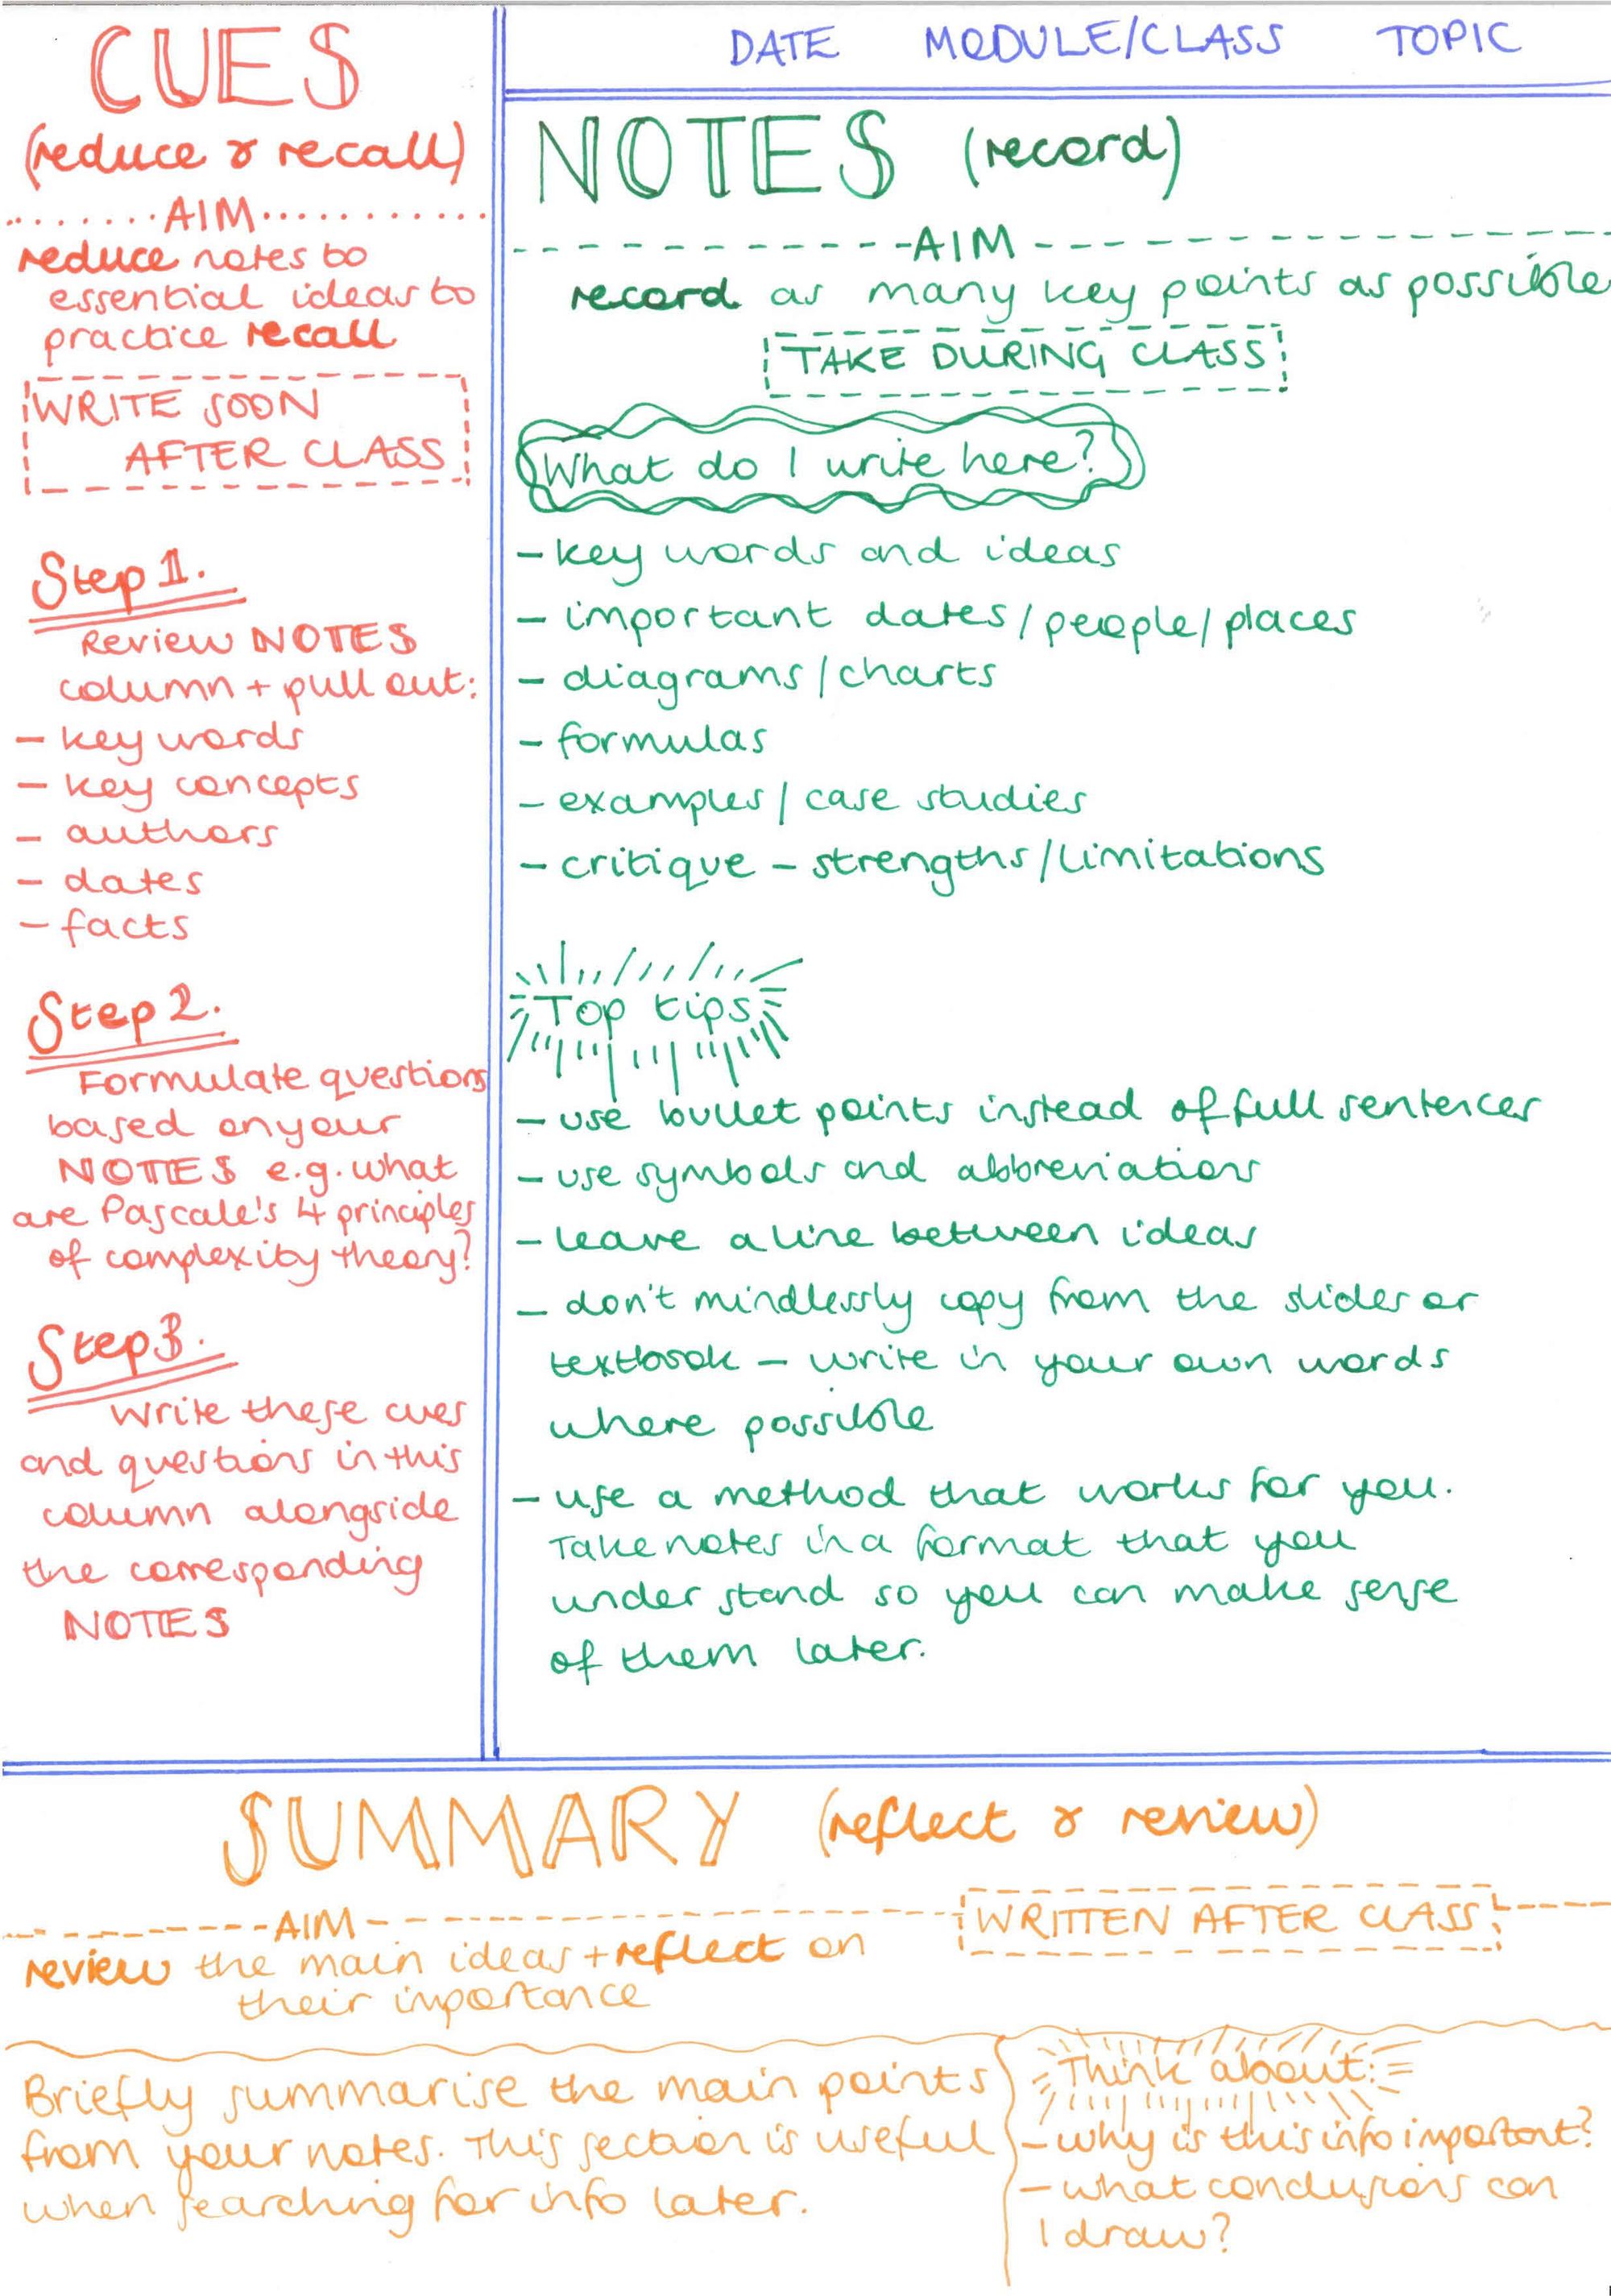 CUES
(reduce & recall)
AIM
reduce notes to
essential ideas to
practice recall
WRITE SOON
AFTER CLASS
Step 1.
Review NOTES
column + pull out:
- key words
- key concepts
- authors
- dates
- facts
Step 2.
Formulate questions
based on your
NOTES e.g. what
are Pascale's 4 principles
of complexity theory?
Step 3.
Write these cues
and questions in this
column alongside
the corresponding
NOTES
DATE MODULE/CLASS TOPIC
NOTES (record)
AIM
record as many key points as possible
TAKE DURING CLASS
What do I write here?
- key words and ideas
- important dates/people/places
- diagrams/charts
- formulas
- examples/case studies
- critique - strengths/limitations
Top tips
- use bullet points instead of full sentences
- use symbols and abbreviations
- leave a line between ideas
- don't mindlessly copy from the slides or
textbook - write in your own words
where possible
- use a method that works for you.
Take notes in a format that you
understand so you can make sense
of them later.
SUMMARY (reflect & review)
AIM
WRITTEN AFTER CLASS
review the main ideas + reflect on
their importance
Briefly summarise the main points
from your notes. This section is useful
when searching for info later.
Think about:
- why is this info important?
- what conclusions can
I draw?